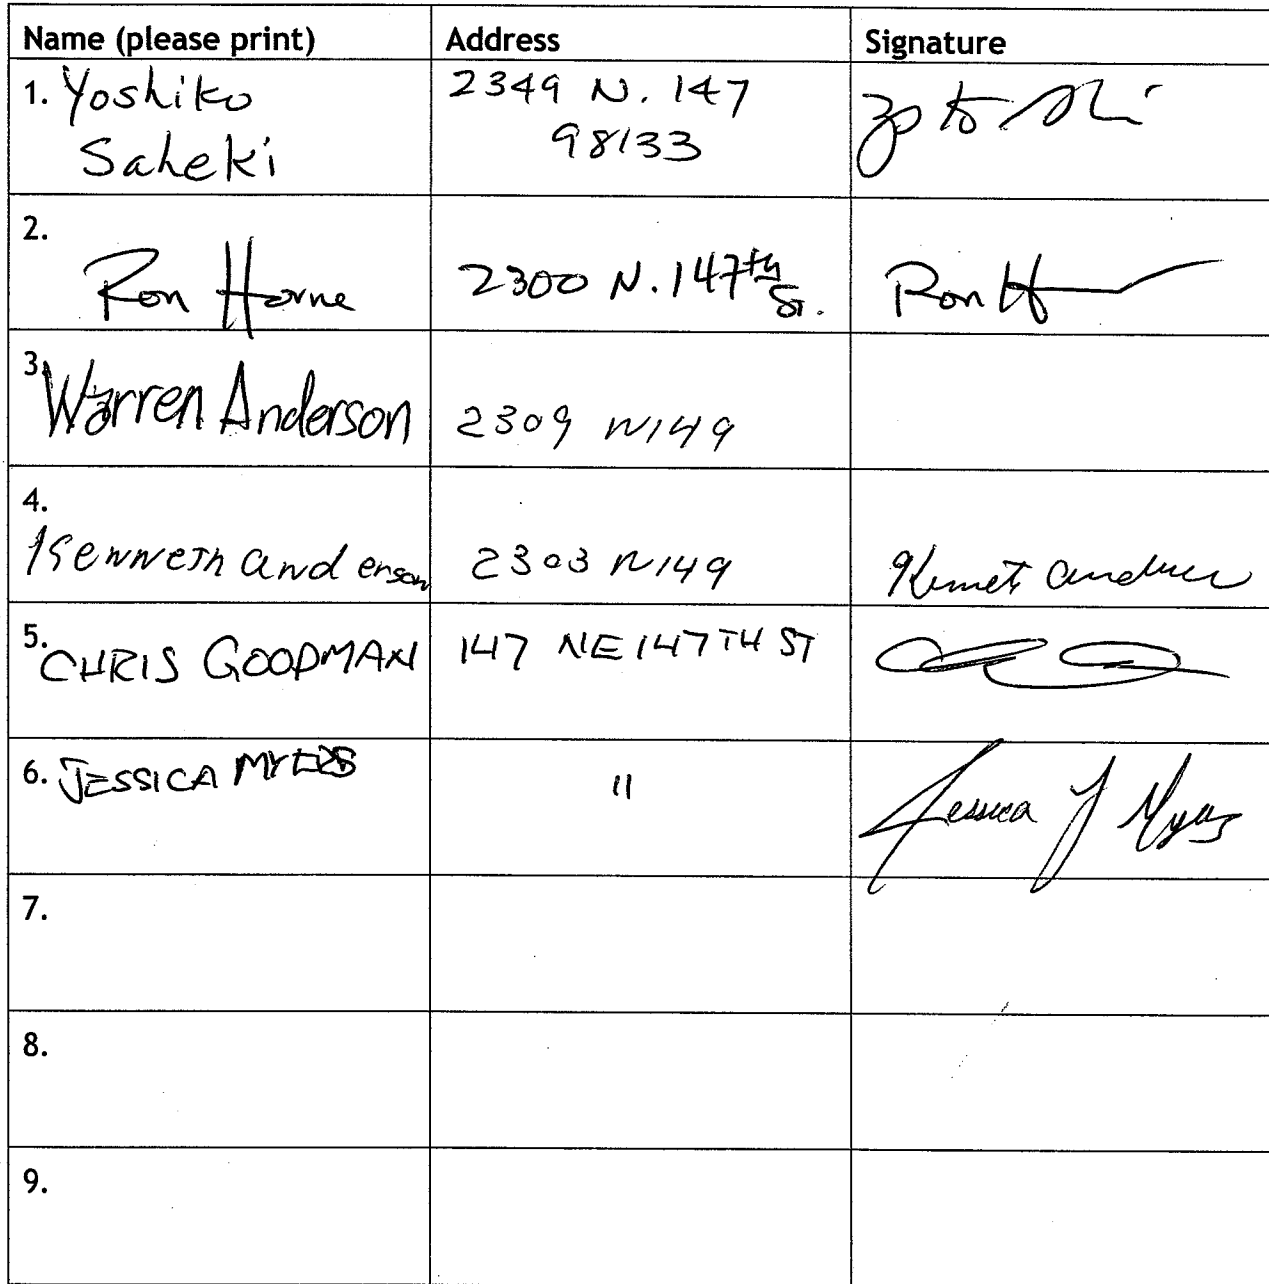 Name (please print) Address Signature
1. Yoshiko 2349 N. 147
Saheki 98133
2.
Ron Horne 2300 N. 147th St. Ron H
3. Warren Anderson 2309 N149
4.
Kenneth anderson 2303 N149 Kenneth
5. CHRIS GOODMAN 147 NE 147TH ST
6. JESSICA MYERS 11 Jessica J Myers
7.
8.
9.